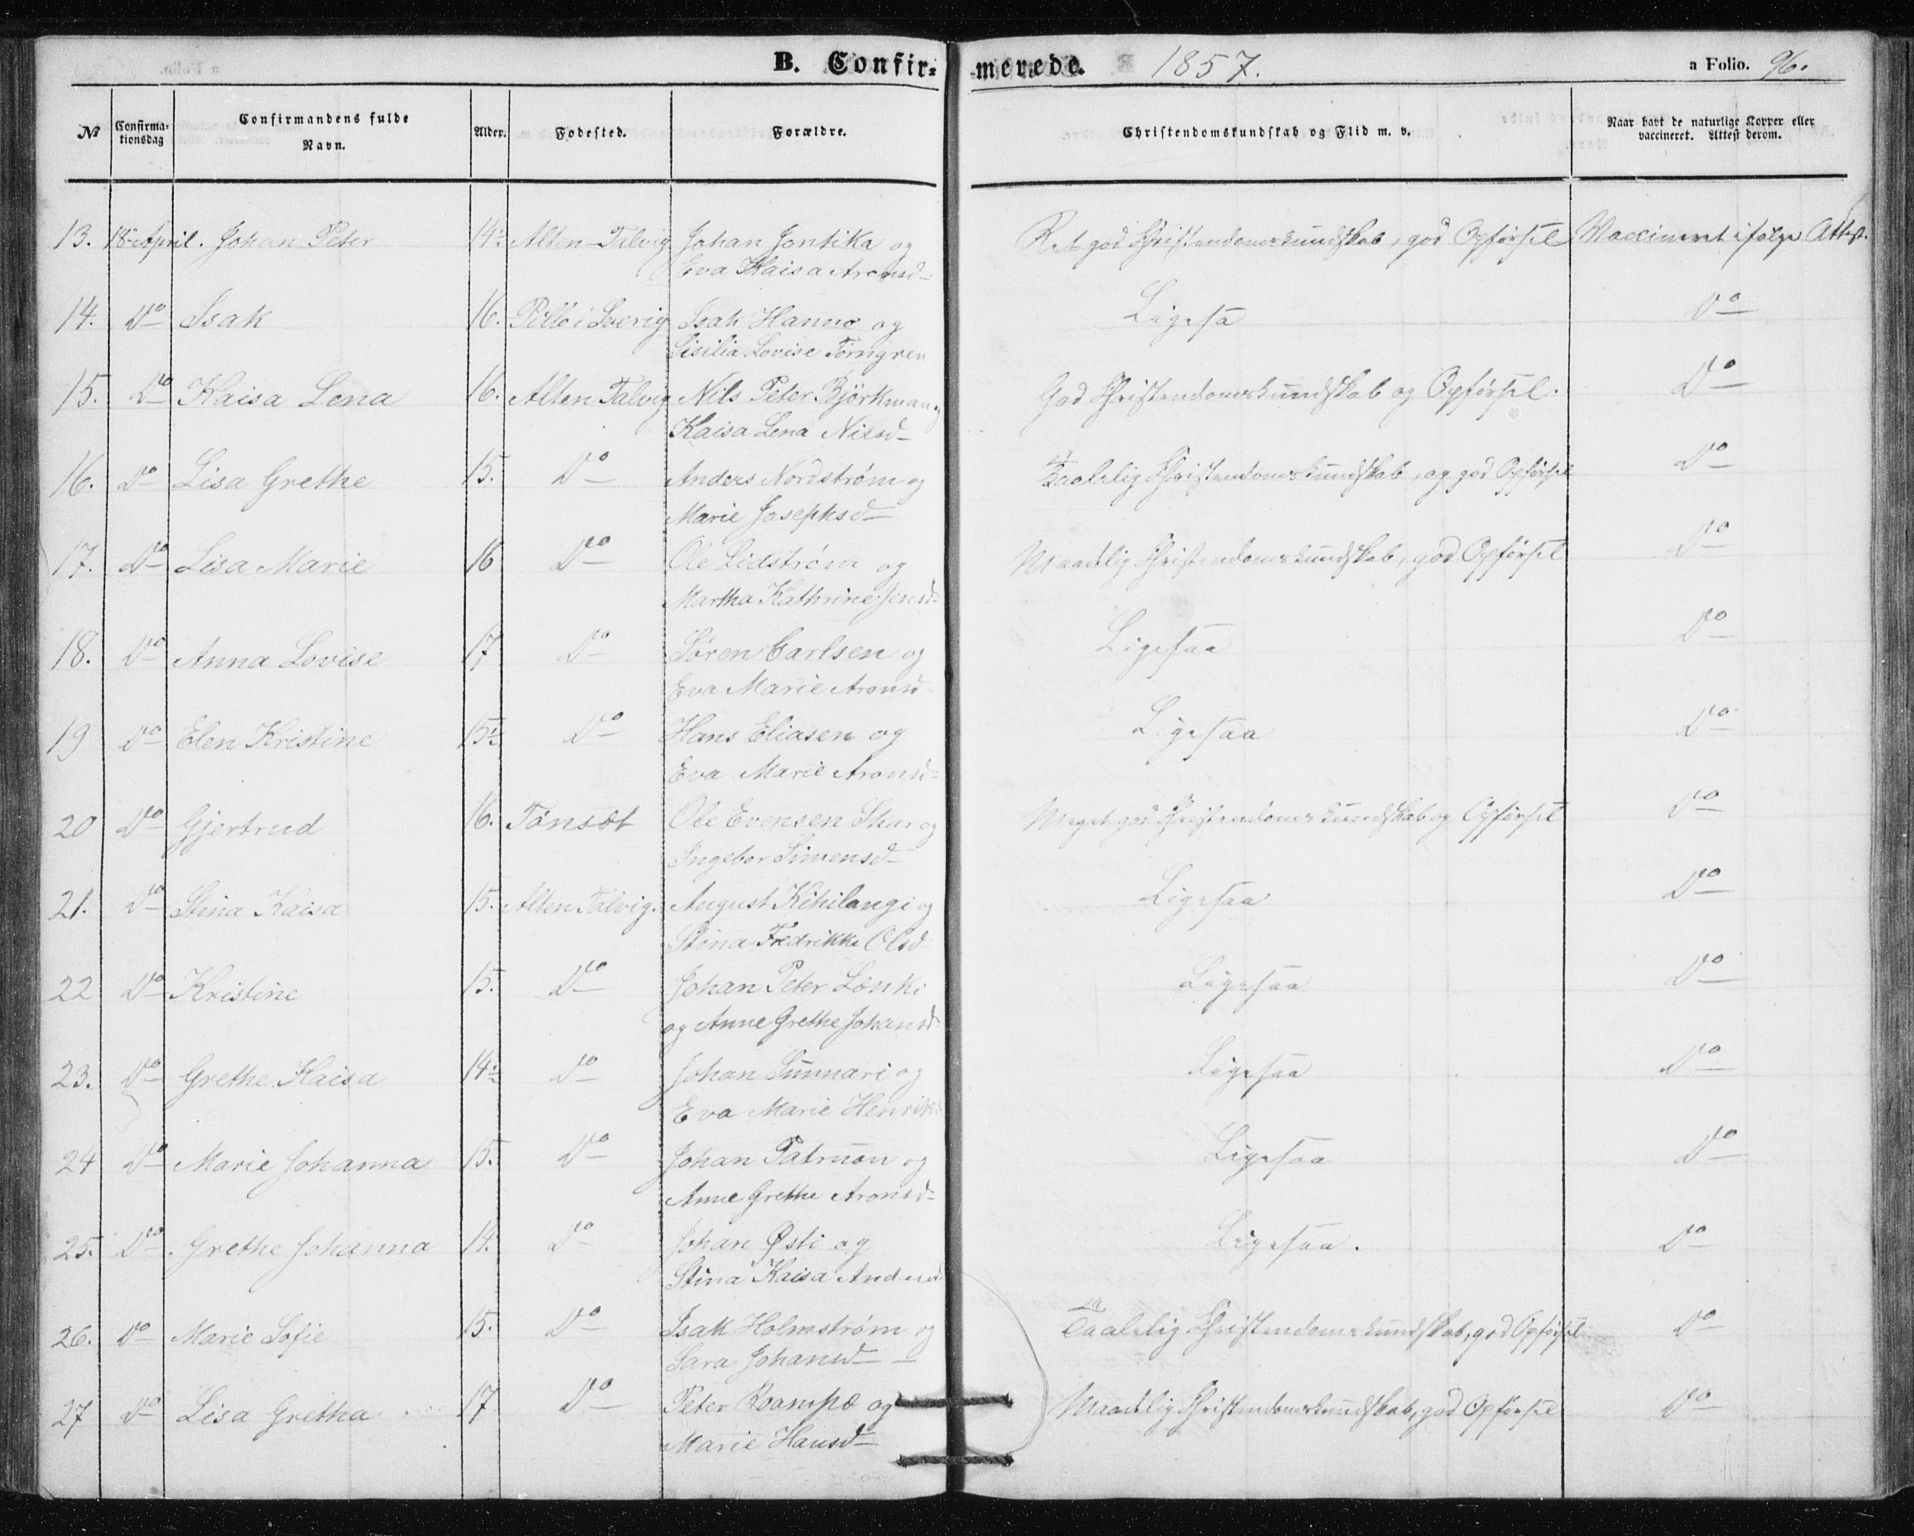 B. Confir- merede. 1857. a Folio. 96.
№ Confirma-tionsdag Confirmandens fulde Navn. Alder. Fødested. Forældre. Christendomskundskab og Flid m. v. Naar havt de naturlige Kopper eller vaccineret. Attest derom.
13. 18de April. Johan Peter 14½ Alten-Talvig Johan Jontika og Ret god Christendomskundskab, god Opførsel Vaccineret ifølge Attst.
Eva Kaisa Aronsd
14. Do Isak 16. Pello i Sverig Isak Hanno og Ligesa Do
Sisilia Lovise Törngren
15. Do Kaisa Lena 16. Alten Talvig Nils Peter Björkman og God Christendomskundskab og Opførsel. Do
Kaisa Lena Nilsd
16. Do Lisa Grethe 15. Do Anders Nordstrøm og Taalelig Christendomskundskab, og god Opførsel Do
Marie Josephsd
17. Do Lisa Marie 16 Do Ole Lidstrøm og Maadelig Christendomskundskab, god Opførsel Do
Martha Kathrine Jensd
18. Do Anna Lovise 17 Do Søren Carlsen og Ligesaa Do
Eva Marie Aronsd
19 Do Elen Kristine 15½ Do Hans Eliasen og Ligesaa Do
Eva Marie Aronsd
20 Do Gjertrud 16. Tønset Ole Evensen Skar og Meget god Christendomskundskab og Opførsel Do
Ingebor Simensd
21. Do Stina Kaisa 15. Alten Talvig. August Kihilangi og Ligesaa Do
Stina Fredrikke Olsd
22 Do Kristine 15. Do Johan Peter Lænki Ligesaa Do
og Anne Grethe Johansd
23. Do Grethe Kaisa 14½ Do Johan Sunnari og Ligesaa Do
Eva Marie Henriks
24 Do Marie Johanna 15. Do Johan Patruon og Ligesaa Do
Anne Grethe Aronsd
25. Do. Grethe Johanna 14. Do Johan Østi og Ligesaa. Do
Stina Kaisa Andersd
26. Do Marie Sofie 15. Do Isak Holmstrøm og Taalelig Christendomskundskab, god Opførsel Do
Sara Johansd
27 Do Lisa Gretha 17 Do Peter Roampæ og Maadelig Christendomskundskab, god Opførsel Do
Marie Hansd